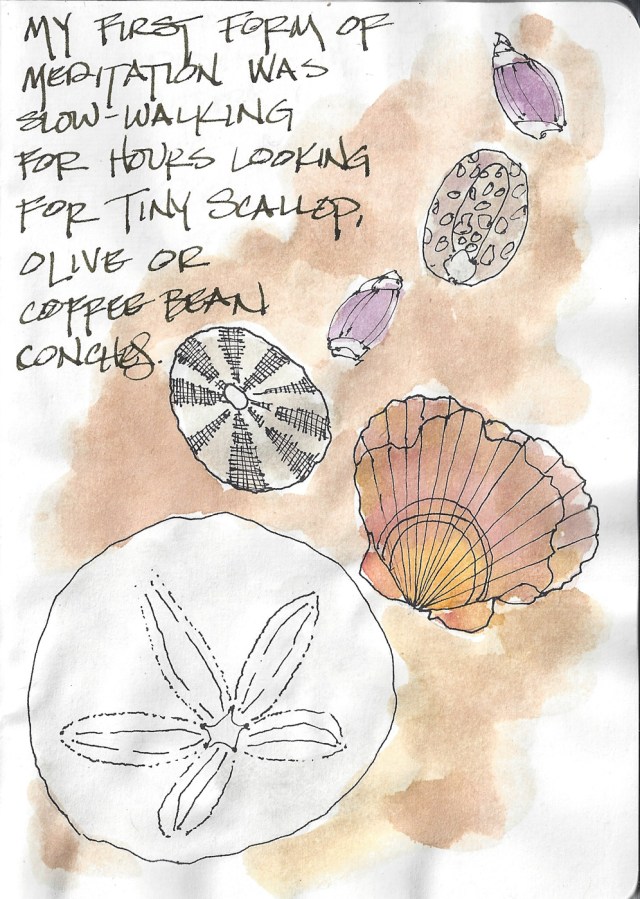 MY FIRST FORM OF
MEDITATION WAS
SLOW-WALKING
FOR HOURS LOOKING
FOR TINY SCALLOP,
OLIVE OR
COFFEE BEAN
CONCHES.